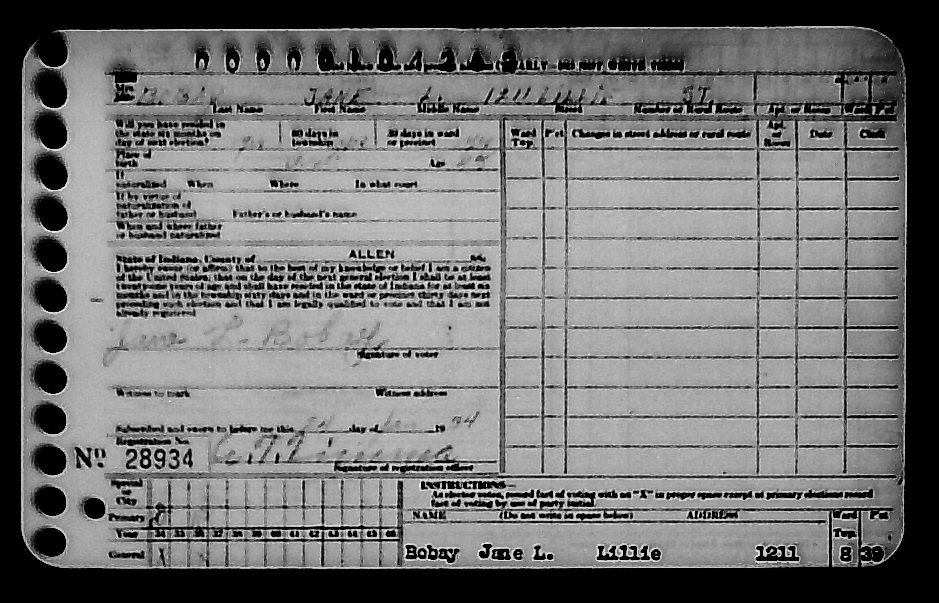 BOBAY JANE L. 1211 LILLIE ST.
Last Name First Name Middle Name Street Number or Rural Route Apt. or Room Ward Pct
Will you have resided in the state six months on day of next election? 60 days in township 30 days in ward or precinct
Place of birth Age
If naturalized When Where In what court
If by virtue of naturalization of father or husband Father's or husband's name
When and where father or husband naturalized
State of Indiana, County of ALLEN ss.
I hereby swear (or affirm) that to the best of my knowledge or belief I am a citizen
of the United States; that on the day of the next general election I shall be at least
twenty-one years of age and shall have resided in the state of Indiana for at least six
months and in the township sixty days and in the ward or precinct thirty days next
preceding such election and that I am legally qualified to vote and that I am not
already registered
Jane L. Bobay
Signature of voter
Witness to mark Witness address
Subscribed and sworn to before me this day of 19 34
Registration No.
No 28934
Signature of registration officer
Ward Twp. P'ct Changes in street address or rural route Apt. or Room Date Clerk
Special or City
Primary
Year 34 35 36 37 38 39 40 41 42 43 44 45 46
General X
INSTRUCTIONS—
As elector votes, record fact of voting with an "X" in proper space except at primary elections record
fact of voting by use of party initial.
NAME (Do not write in space below) ADDRESS Ward Twp. P'ct
Bobay Jane L. Lillie 1211 8 39